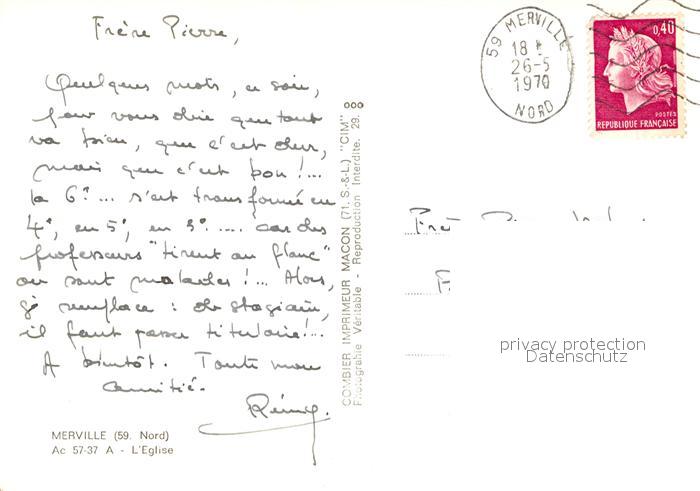 Frère Pierre,
Quelques mots, ce soir,
pour vous dire que tout
va bien, que c'est dur,
mais que c'est bon !...
la 6e... s'est transformée en
4e, en 5e, en 3e.... car des
professeurs "tirent au flanc"
ou sont malades !... Alors,
je remplace : de stagiaire,
il faut passer titulaire !...
A bientôt. Toute mon
amitié.
Rémy.
MERVILLE (59. Nord)
Ac 57-37 A - L'Eglise
COMBIER IMPRIMEUR MACON (71. S.-&-L.) "CIM"
Photographie Véritable - Reproduction Interdite. 29.
59 MERVILLE
18 H
26-5
1970
NORD
0,40
POSTES
REPUBLIQUE FRANÇAISE
privacy protection
Datenschutz